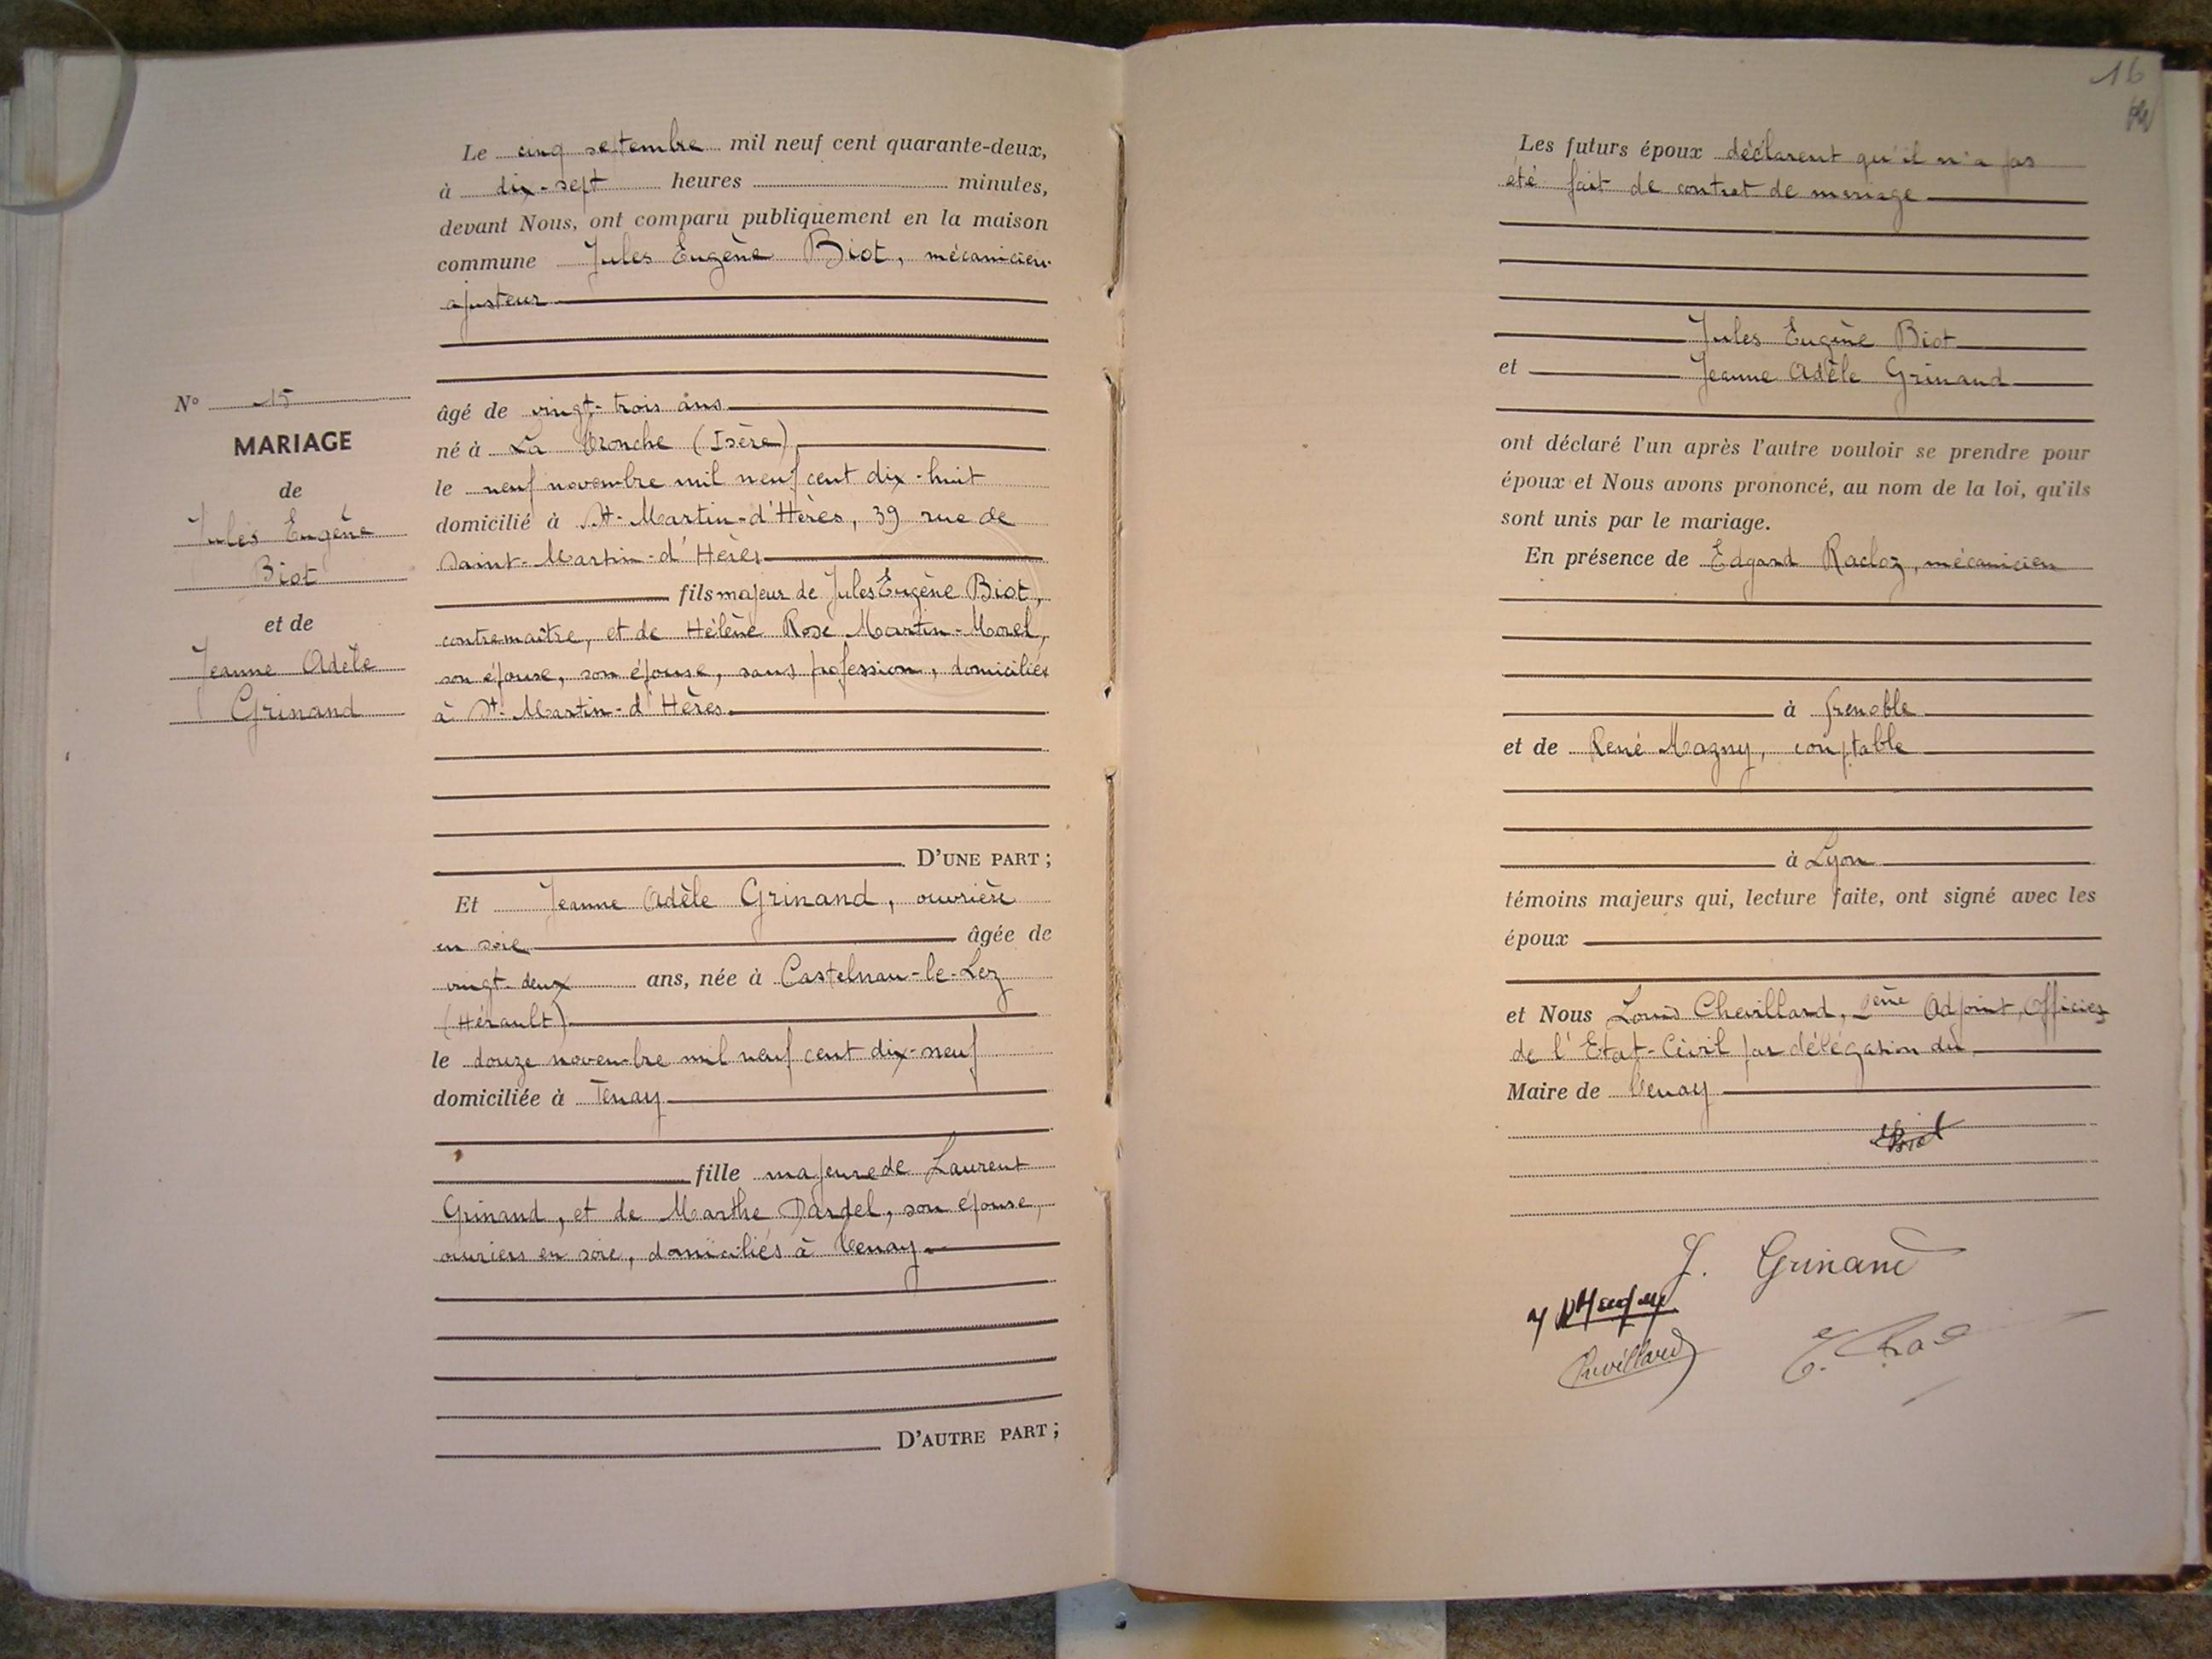 N° 15
MARIAGE
de
Jules Eugène
Biot
et de
Jeanne Adèle
Grinand
Le cinq septembre mil neuf cent quarante-deux,
à dix-sept heures minutes,
devant Nous, ont comparu publiquement en la maison
commune Jules Eugène Biot, mécanicien
ajusteur
âgé de vingt-trois ans
né à La Tronche (Isère)
le neuf novembre mil neuf cent dix-huit
domicilié à St-Martin-d'Hères, 39 rue de
Saint-Martin-d'Hères
fils majeur de Jules Eugène Biot,
contremaître, et de Hélène Rose Martin-Morel,
son épouse, son épouse, sans profession, domiciliés
à St-Martin-d'Hères.
D'UNE PART ;
Et Jeanne Adèle Grinand, ouvrière
en soie âgée de
vingt-deux ans, née à Castelnau-le-Lez
(Hérault)
le douze novembre mil neuf cent dix-neuf
domiciliée à Tenay
fille majeure de Laurent
Grinand, et de Marthe Dardel, son épouse,
ouvriers en soie, domiciliés à Tenay.
D'AUTRE PART ;
16
Les futurs époux déclarent qu'il n'a pas
été fait de contrat de mariage
Jules Eugène Biot
et Jeanne Adèle Grinand
ont déclaré l'un après l'autre vouloir se prendre pour
époux et Nous avons prononcé, au nom de la loi, qu'ils
sont unis par le mariage.
En présence de Edgard Racloz, mécanicien
à Grenoble
et de René Magny, comptable
à Lyon
témoins majeurs qui, lecture faite, ont signé avec les
époux
et Nous Louis Chevillard, 2ème Adjoint, Officier
de l'Etat-Civil par délégation du
Maire de Tenay
Biot
J. Grinand
Chevillard